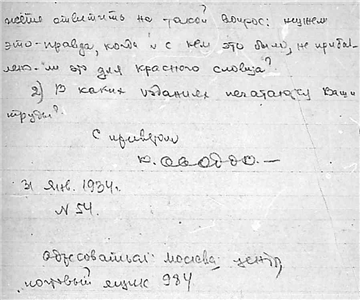 жете ответить на такой вопрос:
это правда, когда и с кем это было, не прибав
лено ли это для красного словца?
2) В каких изданиях печатают Ваши
труды?
С приветом
31 Янв. 1934 г.
N 54.
Адресоваться: Москва центр,
почтовый ящик 984